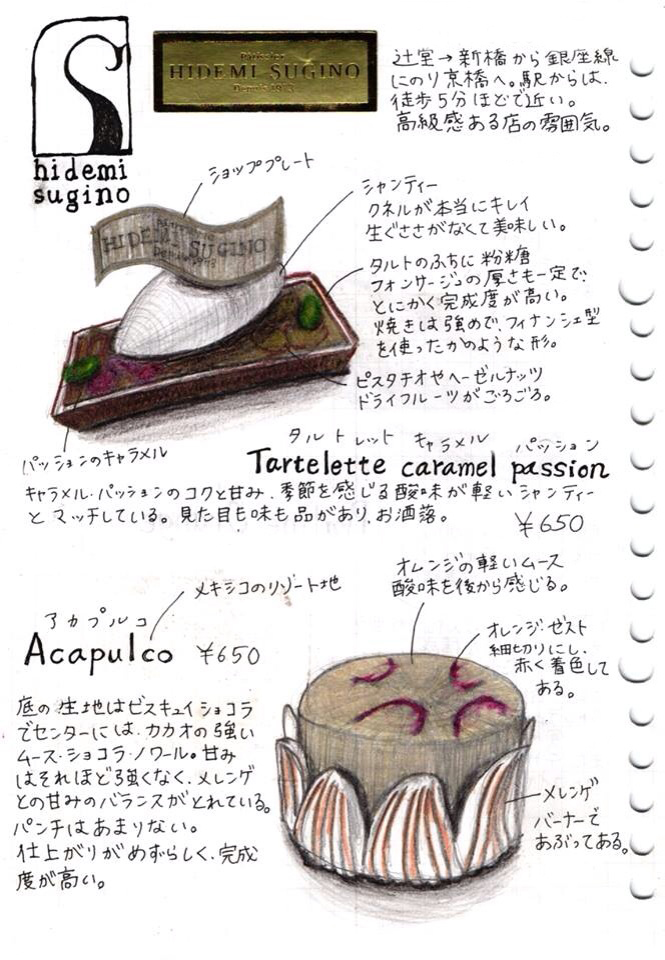 hidemi
sugino
Pâtissier
HIDEMI SUGINO
Depuis 1973
辻堂→新橋から銀座線
にのり京橋へ。駅からは、
徒歩5分ほどで近い。
高級感ある店の雰囲気。
ショッププレート
HIDEMI SUGINO
シャンティー
クネルが本当にキレイ
生ぐささがなくて美味しい。
タルトのふちに粉糖
フォンサージュの厚さも一定で、
とにかく完成度が高い。
焼きは強めで、フィナンシェ型
を使ったかのような形。
ピスタチオやヘーゼルナッツ
ドライフルーツがごろごろ。
パッションのキャラメル
タルトレット キャラメル パッション
Tartelette caramel passion
キャラメル・パッションのコクと甘み、季節を感じる酸味が軽いシャンティー
とマッチしている。見た目も味も品があり、お洒落。
￥650
メキシコのリゾート地
アカプルコ
Acapulco ￥650
オレンジの軽いムース
酸味を後から感じる。
オレンジ・ゼスト
細切りにし、
赤く着色して
ある。
底の生地はビスキュイショコラ
でセンターには、カカオの強い
ムース・ショコラ・ノワール。甘み
はそれほど強くなく、メレンゲ
との甘みのバランスがとれている。
パンチはあまりない。
仕上がりがめずらしく、完成
度が高い。
メレンゲ
バーナーで
あぶってある。